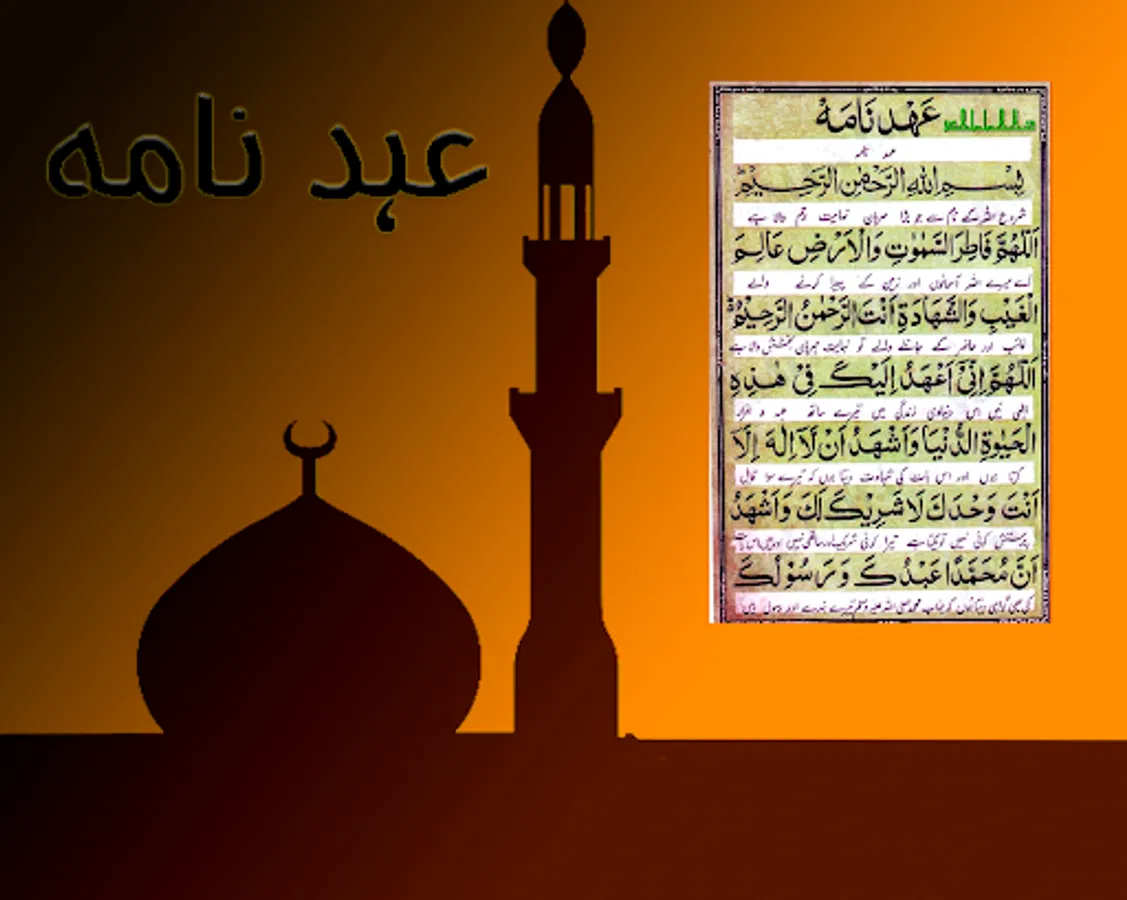 عہد نامه
عَهْد نَامَهْ
عہد نامہ
بِسْمِ اللهِ الرَّحْمٰنِ الرَّحِيْمِ
شروع اللہ کے نام سے جو بڑا مہربان نہایت رحم والا ہے
اَللّٰهُمَّ فَاطِرَ السَّمٰوٰتِ وَالْاَرْضِ عَالِمَ
اے میرے اللہ آسمانوں اور زمین کے پیدا کرنے والے
الْغَيْبِ وَالشَّهَادَةِ اَنْتَ الرَّحْمٰنُ الرَّحِيْمُ
غائب اور حاضر کے جاننے والے تو نہایت مہربان بخشش والا ہے
اَللّٰهُمَّ اِنِّيْٓ اَعْهَدُ اِلَيْكَ فِيْ هٰذِهِ
الٰہی میں اس دنیاوی زندگی میں تیرے ساتھ عہد و اقرار
الْحَيٰوةِ الدُّنْيَا وَاَشْهَدُ اَنْ لَّآ اِلٰهَ اِلَّا
کرتا ہوں اور اس بات کی شہادت دیتا ہوں کہ تیرے سوا قابل
اَنْتَ وَحْدَكَ لَا شَرِيْكَ لَكَ وَاَشْهَدُ
پرستش کوئی نہیں تو یکتا ہے تیرا کوئی شریک اور ساتھی نہیں اور میں اس بات
اَنَّ مُحَمَّدًا عَبْدُكَ وَرَسُوْلُكَ
کی بھی گواہی دیتا ہوں کہ جناب محمد صلی اللہ علیہ وسلم تیرے بندے اور رسول ہیں